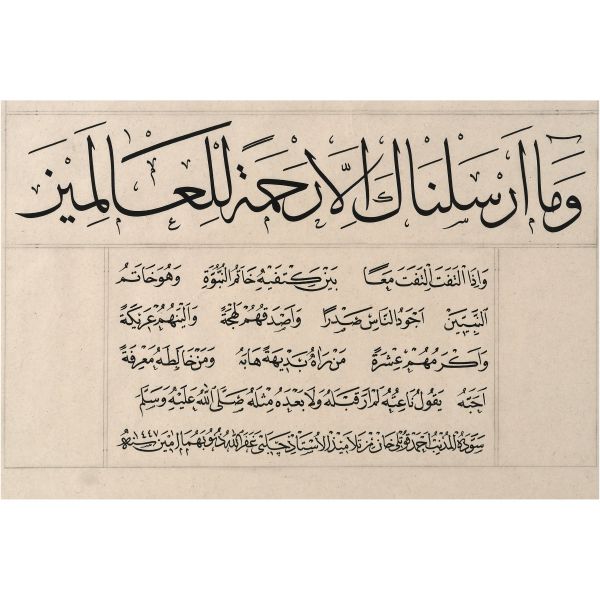 وَمَا اَرْسَلْنَاكَ اِلَّا رَحْمَةً لِلْعَالَمِينَ
وَاِذَا الْتَفَتَ الْتَفَتَ مَعًا بَيْنَ كَتِفَيْهِ خَاتَمُ النُّبُوَّةِ وَهُوَ خَاتَمُ
النَّبِيِّينَ اَجْوَدُ النَّاسِ صَدْرًا وَاَصْدَقُهُمْ لَهْجَةً وَاَلْيَنُهُمْ عَرِيكَةً
وَاَكْرَمُهُمْ عِشْرَةً مَنْ رَاٰهُ بَدِيهَةً هَابَهُ وَمَنْ خَالَطَهُ مَعْرِفَةً
اَحَبَّهُ يَقُولُ نَاعِتُهُ لَمْ اَرَ قَبْلَهُ وَلَا بَعْدَهُ مِثْلَهُ صَلَّى اللّٰهُ عَلَيْهِ وَسَلَّمَ
سَوَّدَهُ الْمُذْنِبُ اَحْمَدُ قوتلى خان مِنْ تَلَامِيذِ الْاُسْتَاذِ چلبى غَفَرَ اللّٰهُ ذُنُوبَهُمَا اٰمِينَ سنه ١٤٤١